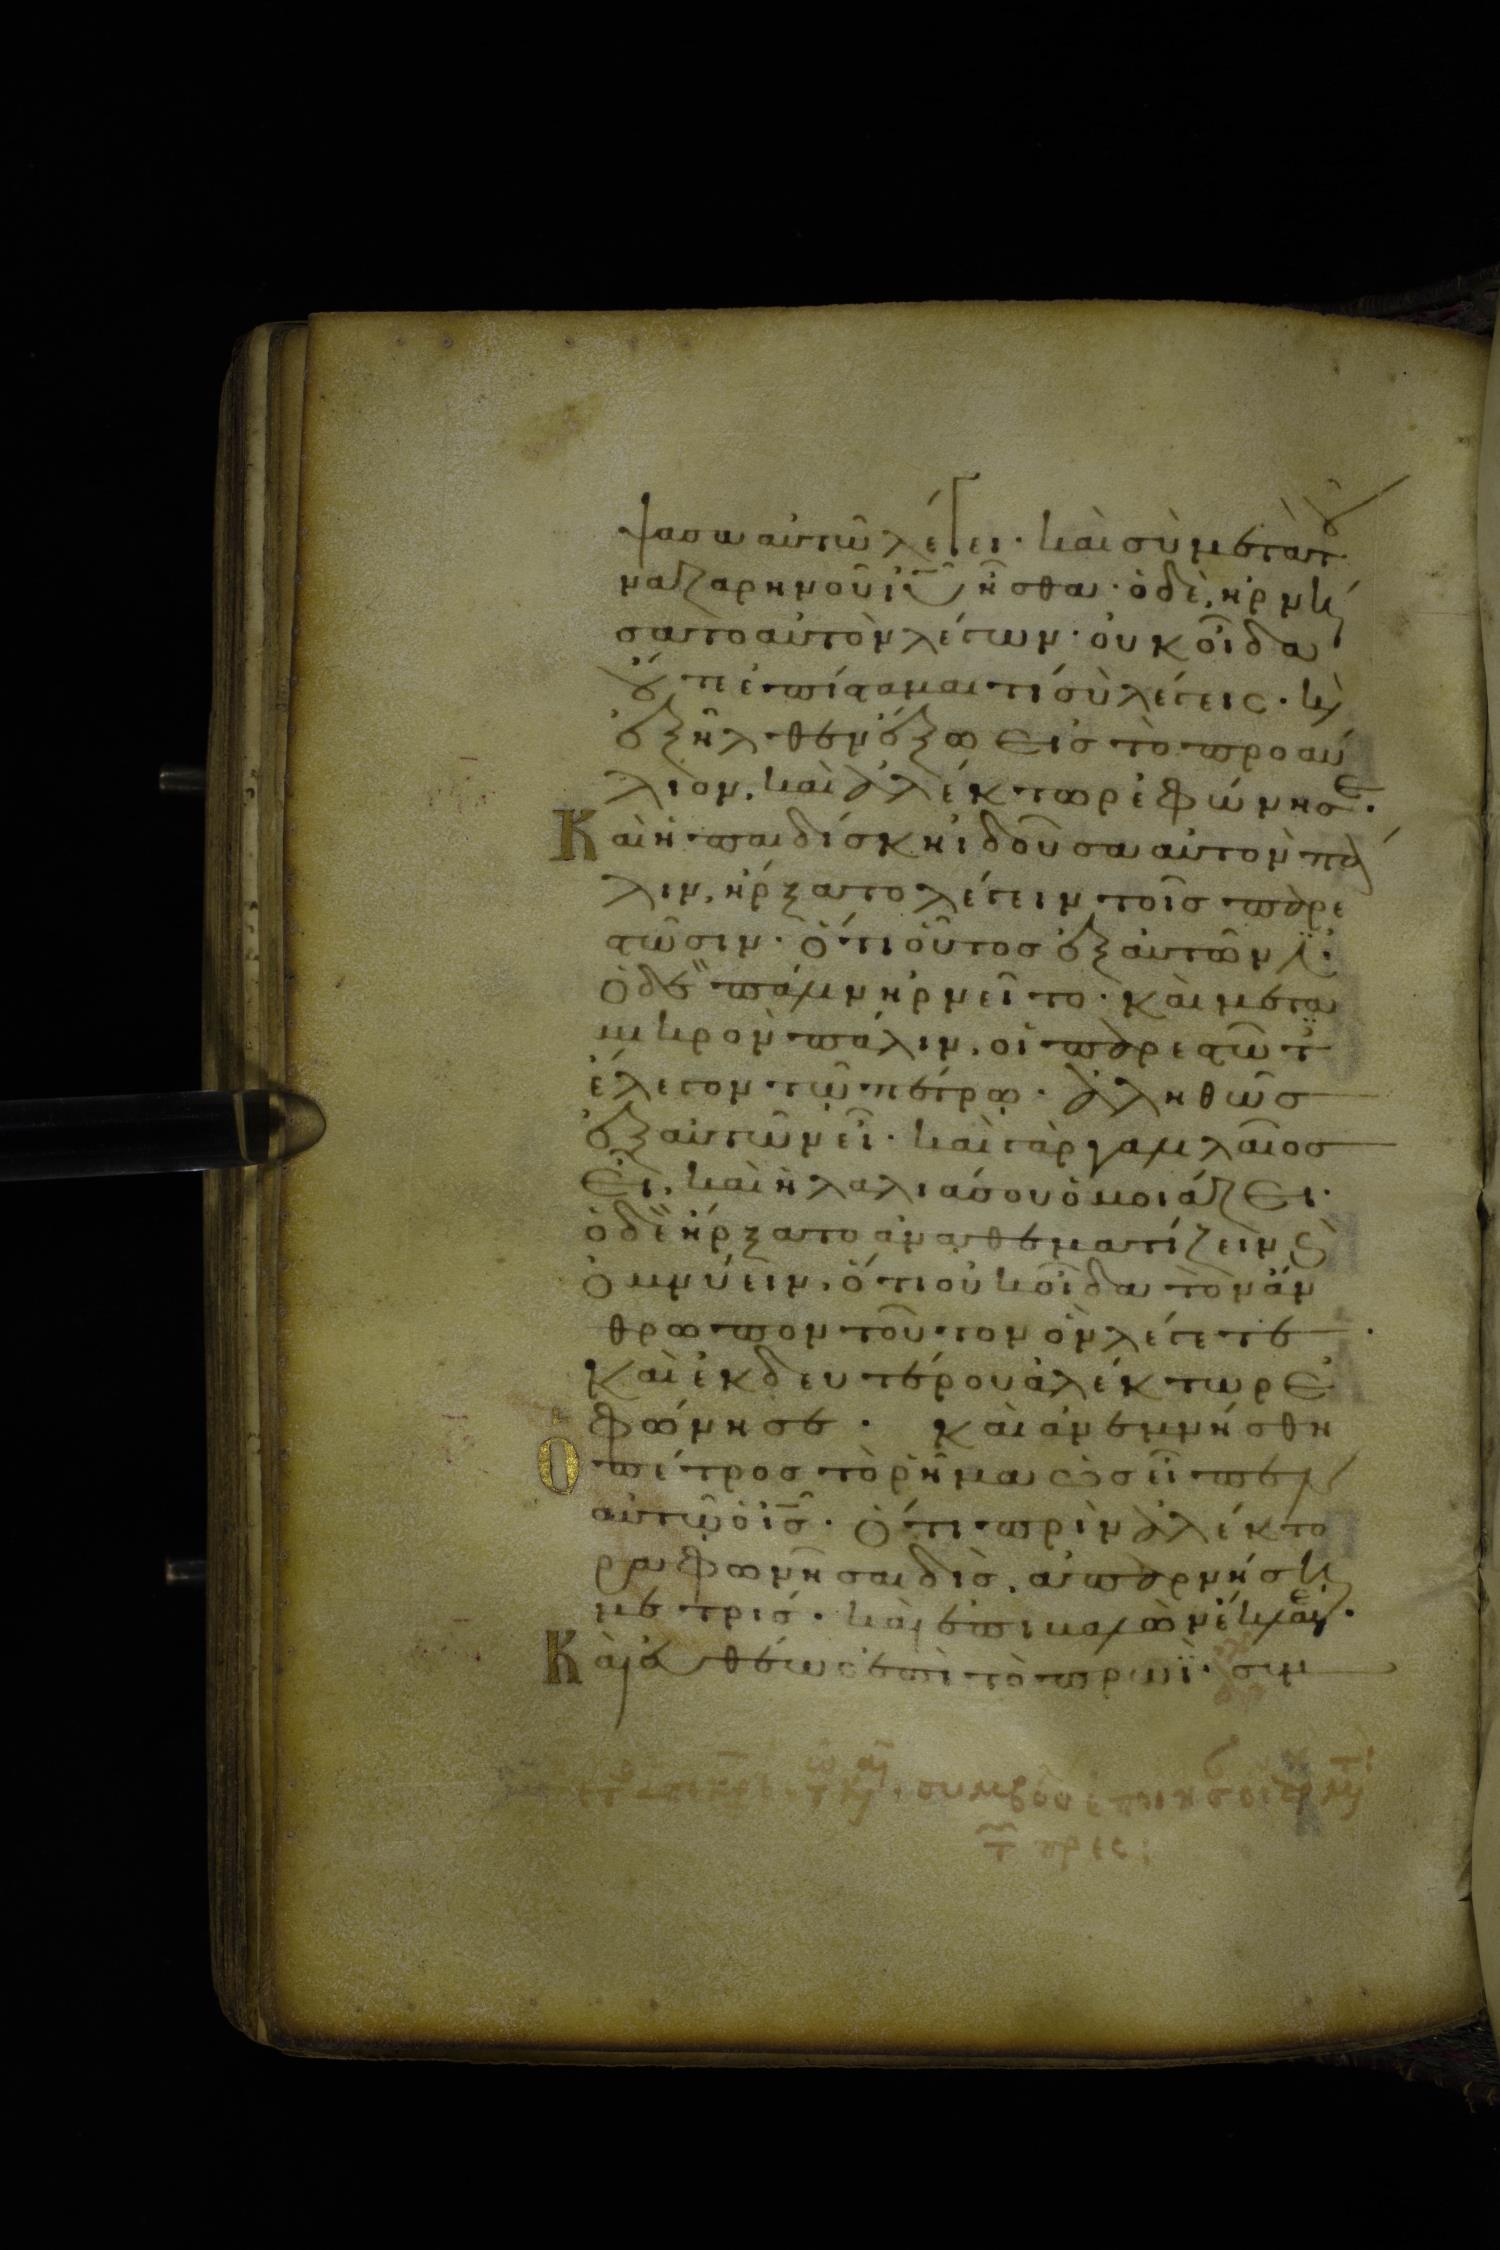 ψασα αὐτῶ λέγει· καὶ σὺ μετὰ τοῦ
ναζαρηνοῦ ἰῦ ἦσθα· ὁ δὲ, ἠρνή
σατο αὐτὸν λέγων· οὐκ οἶδα
οὔτε ἐπίσταμαι τί σὺ λέγεις· καὶ
ἐξῆλθεν ἔξω εἰς τὸ προαύ
λιον, καὶ ἀλέκτωρ ἐφώνησε·
Καὶ ἡ παιδίσκη ἰδοῦσα αὐτὸν πά
λιν, ἤρξατο λέγειν τοῖς παρε
στῶσιν· ὅτι οὗτος ἐξ αὐτῶν ἐ·
ὁ δὲ πάλιν ἠρνεῖτο· καὶ μετὰ
μικρὸν πάλιν, οἱ παρεστῶτ
ἔλεγον τῶ πέτρω· ἀληθῶς
ἐξ αὐτῶν εἶ· καὶ γὰρ γαλιλαῖος
εἶ, καὶ ἡ λαλιά σου ὁμοιάζει·
ὁ δὲ ἤρξατο ἀναθεματίζειν καὶ
ὀμνύειν, ὅτι οὐκ οἶδα τὸν ἄν
θρωπον τοῦτον ὃν λέγετε·
καὶ ἐκ δευτέρου ἀλέκτωρ ἐ
φώνησε· καὶ ἀνεμνήσθη
Ὁ πέτρος τὸ ῥῆμα ὡς εἶπεν
αὐτῶ ὁ ἰς· ὅτι πρὶν ἀλέκτο
ρα φωνῆσαι δὶς, ἀπαρνήσῃ
με τρίς· καὶ ἐπιβαλὼν ἔκλαιε·
Καὶ εὐθέως ἐπὶ τὸ πρωῒ· συμ